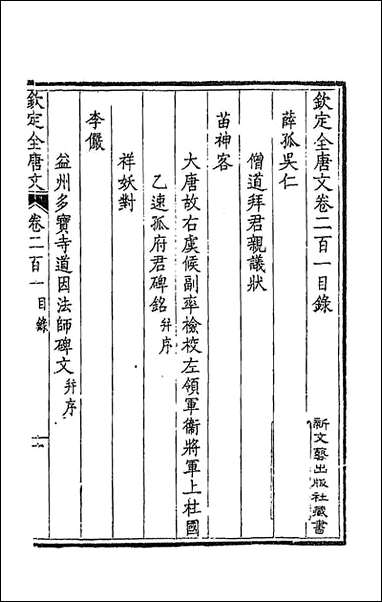 欽定全唐文卷二百一目錄
新文藝出版社藏書
薛孤吳仁
僧道拜君親議狀
苗神客
大唐故右虞候副率檢校左領軍衞將軍上柱國
乙速孤府君碑銘并序
祥妖對
李儼
益州多寶寺道因法師碑文并序
欽定全唐文
卷二百一
目錄
一